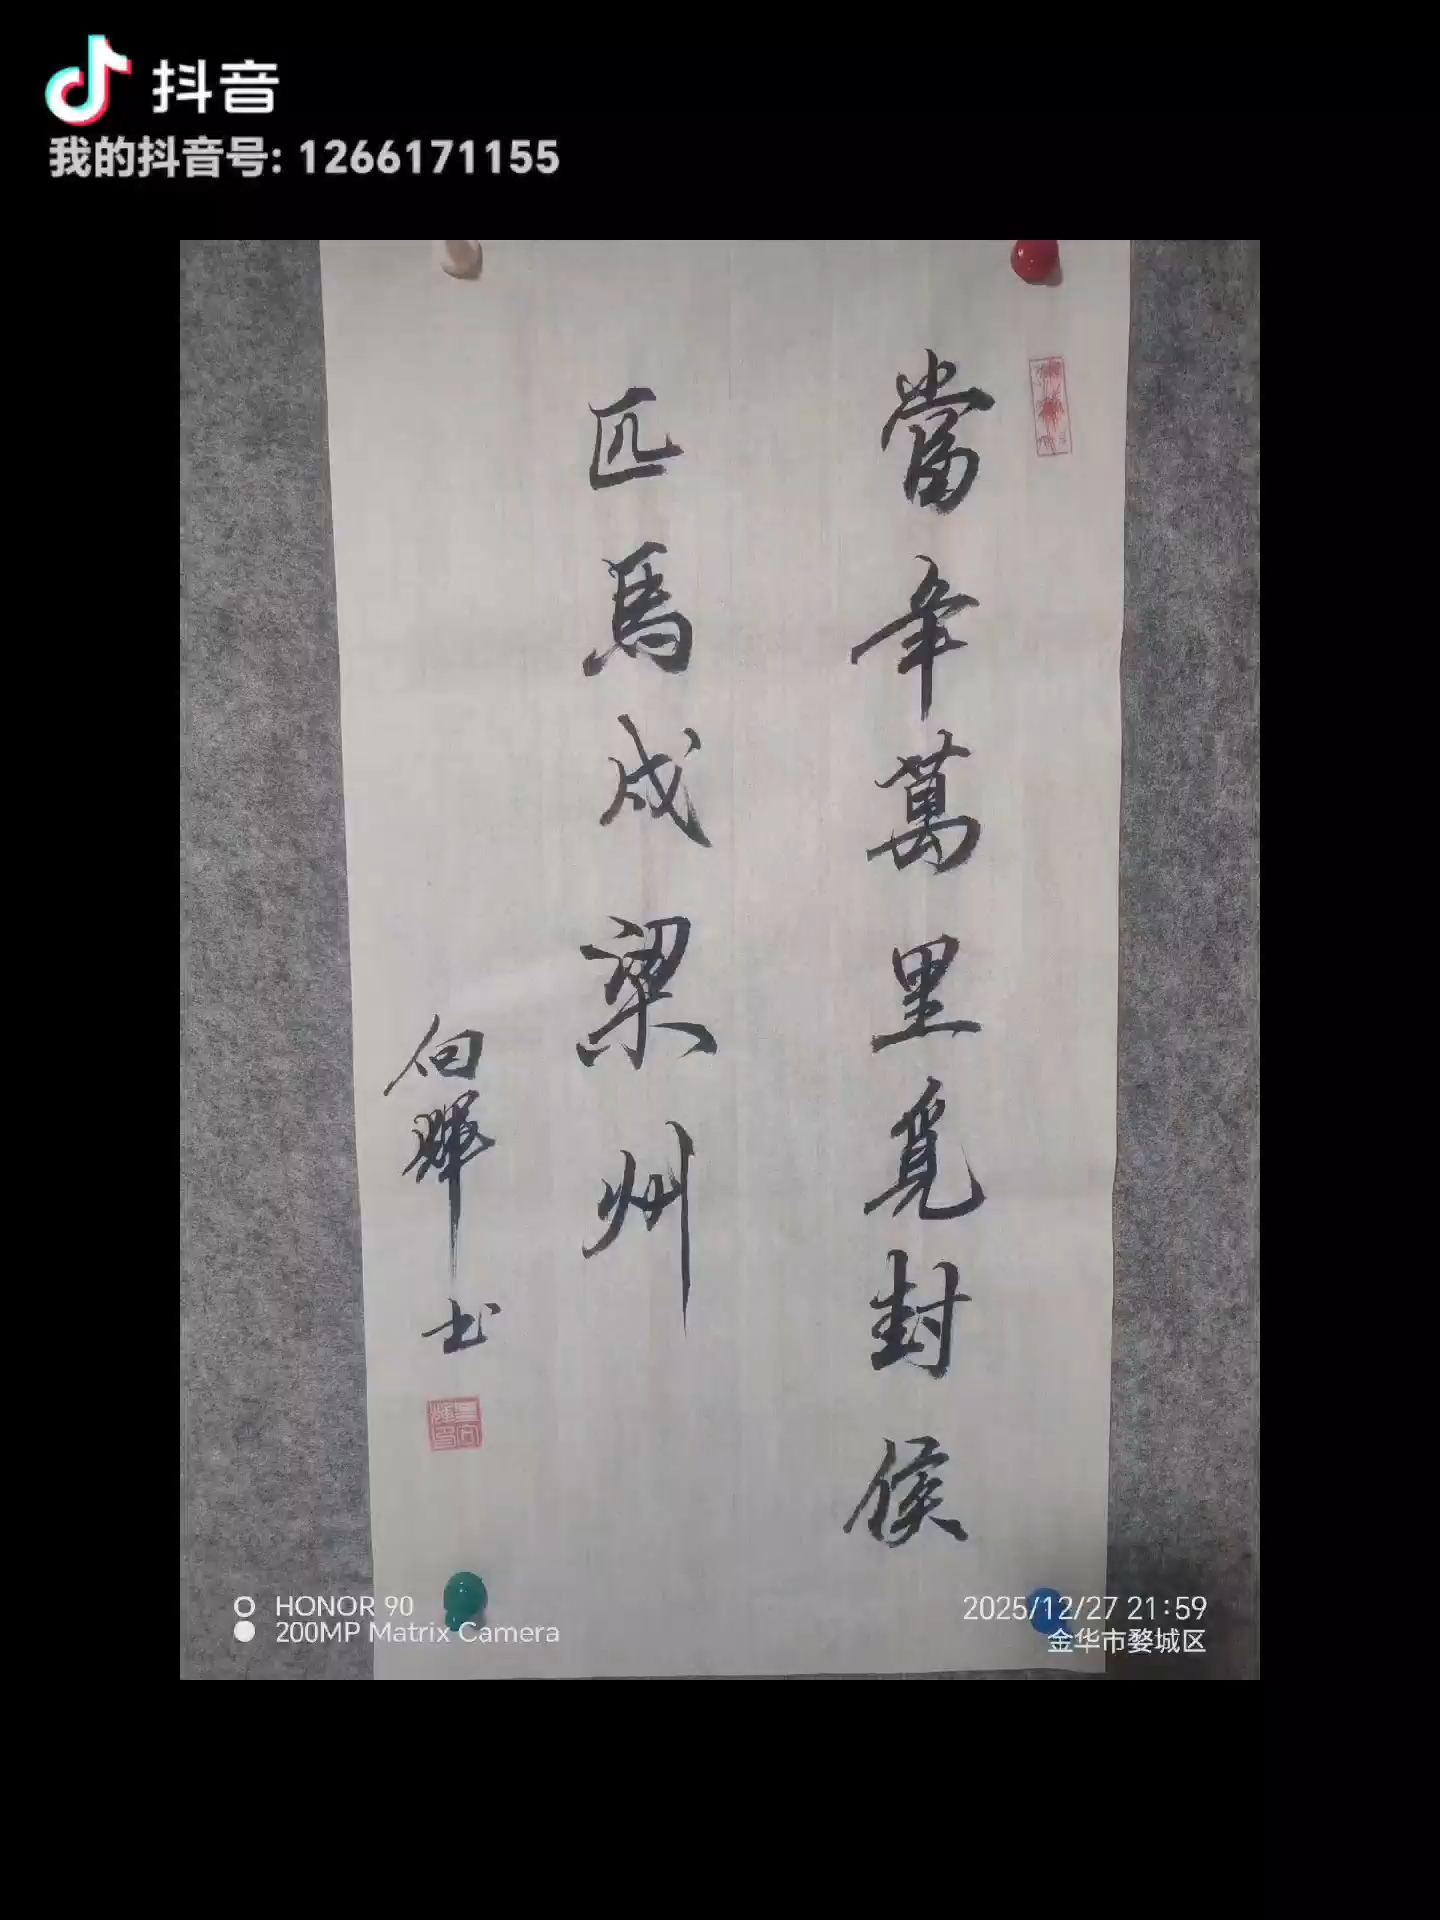 抖音
我的抖音号: 1266171155
當年萬里覓封侯
匹馬戍梁州
向輝书
HONOR 90
200MP Matrix Camera
2025/12/27 21:59
金华市婺城区